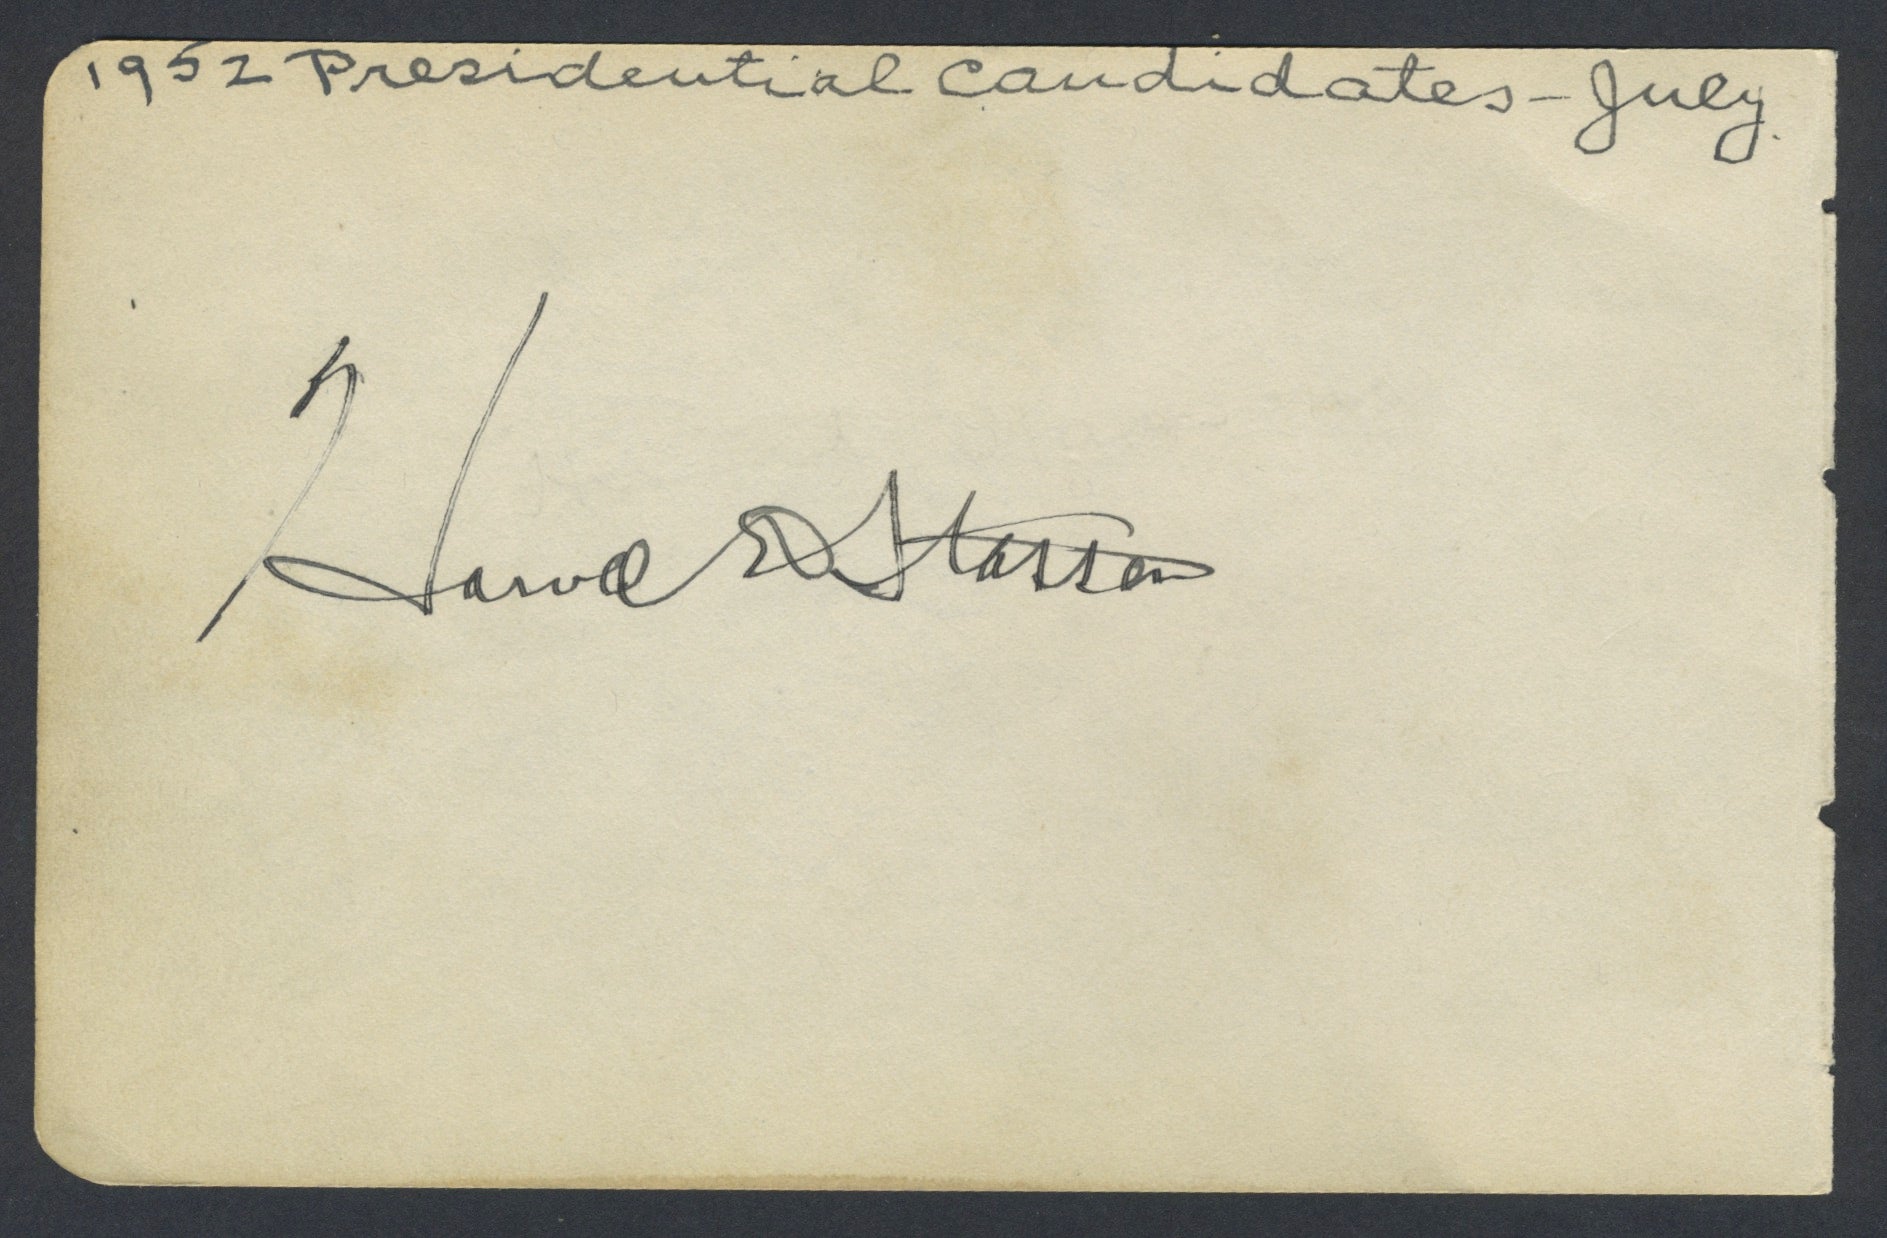 1952 Presidential Candidates - July
Harold E Stassen